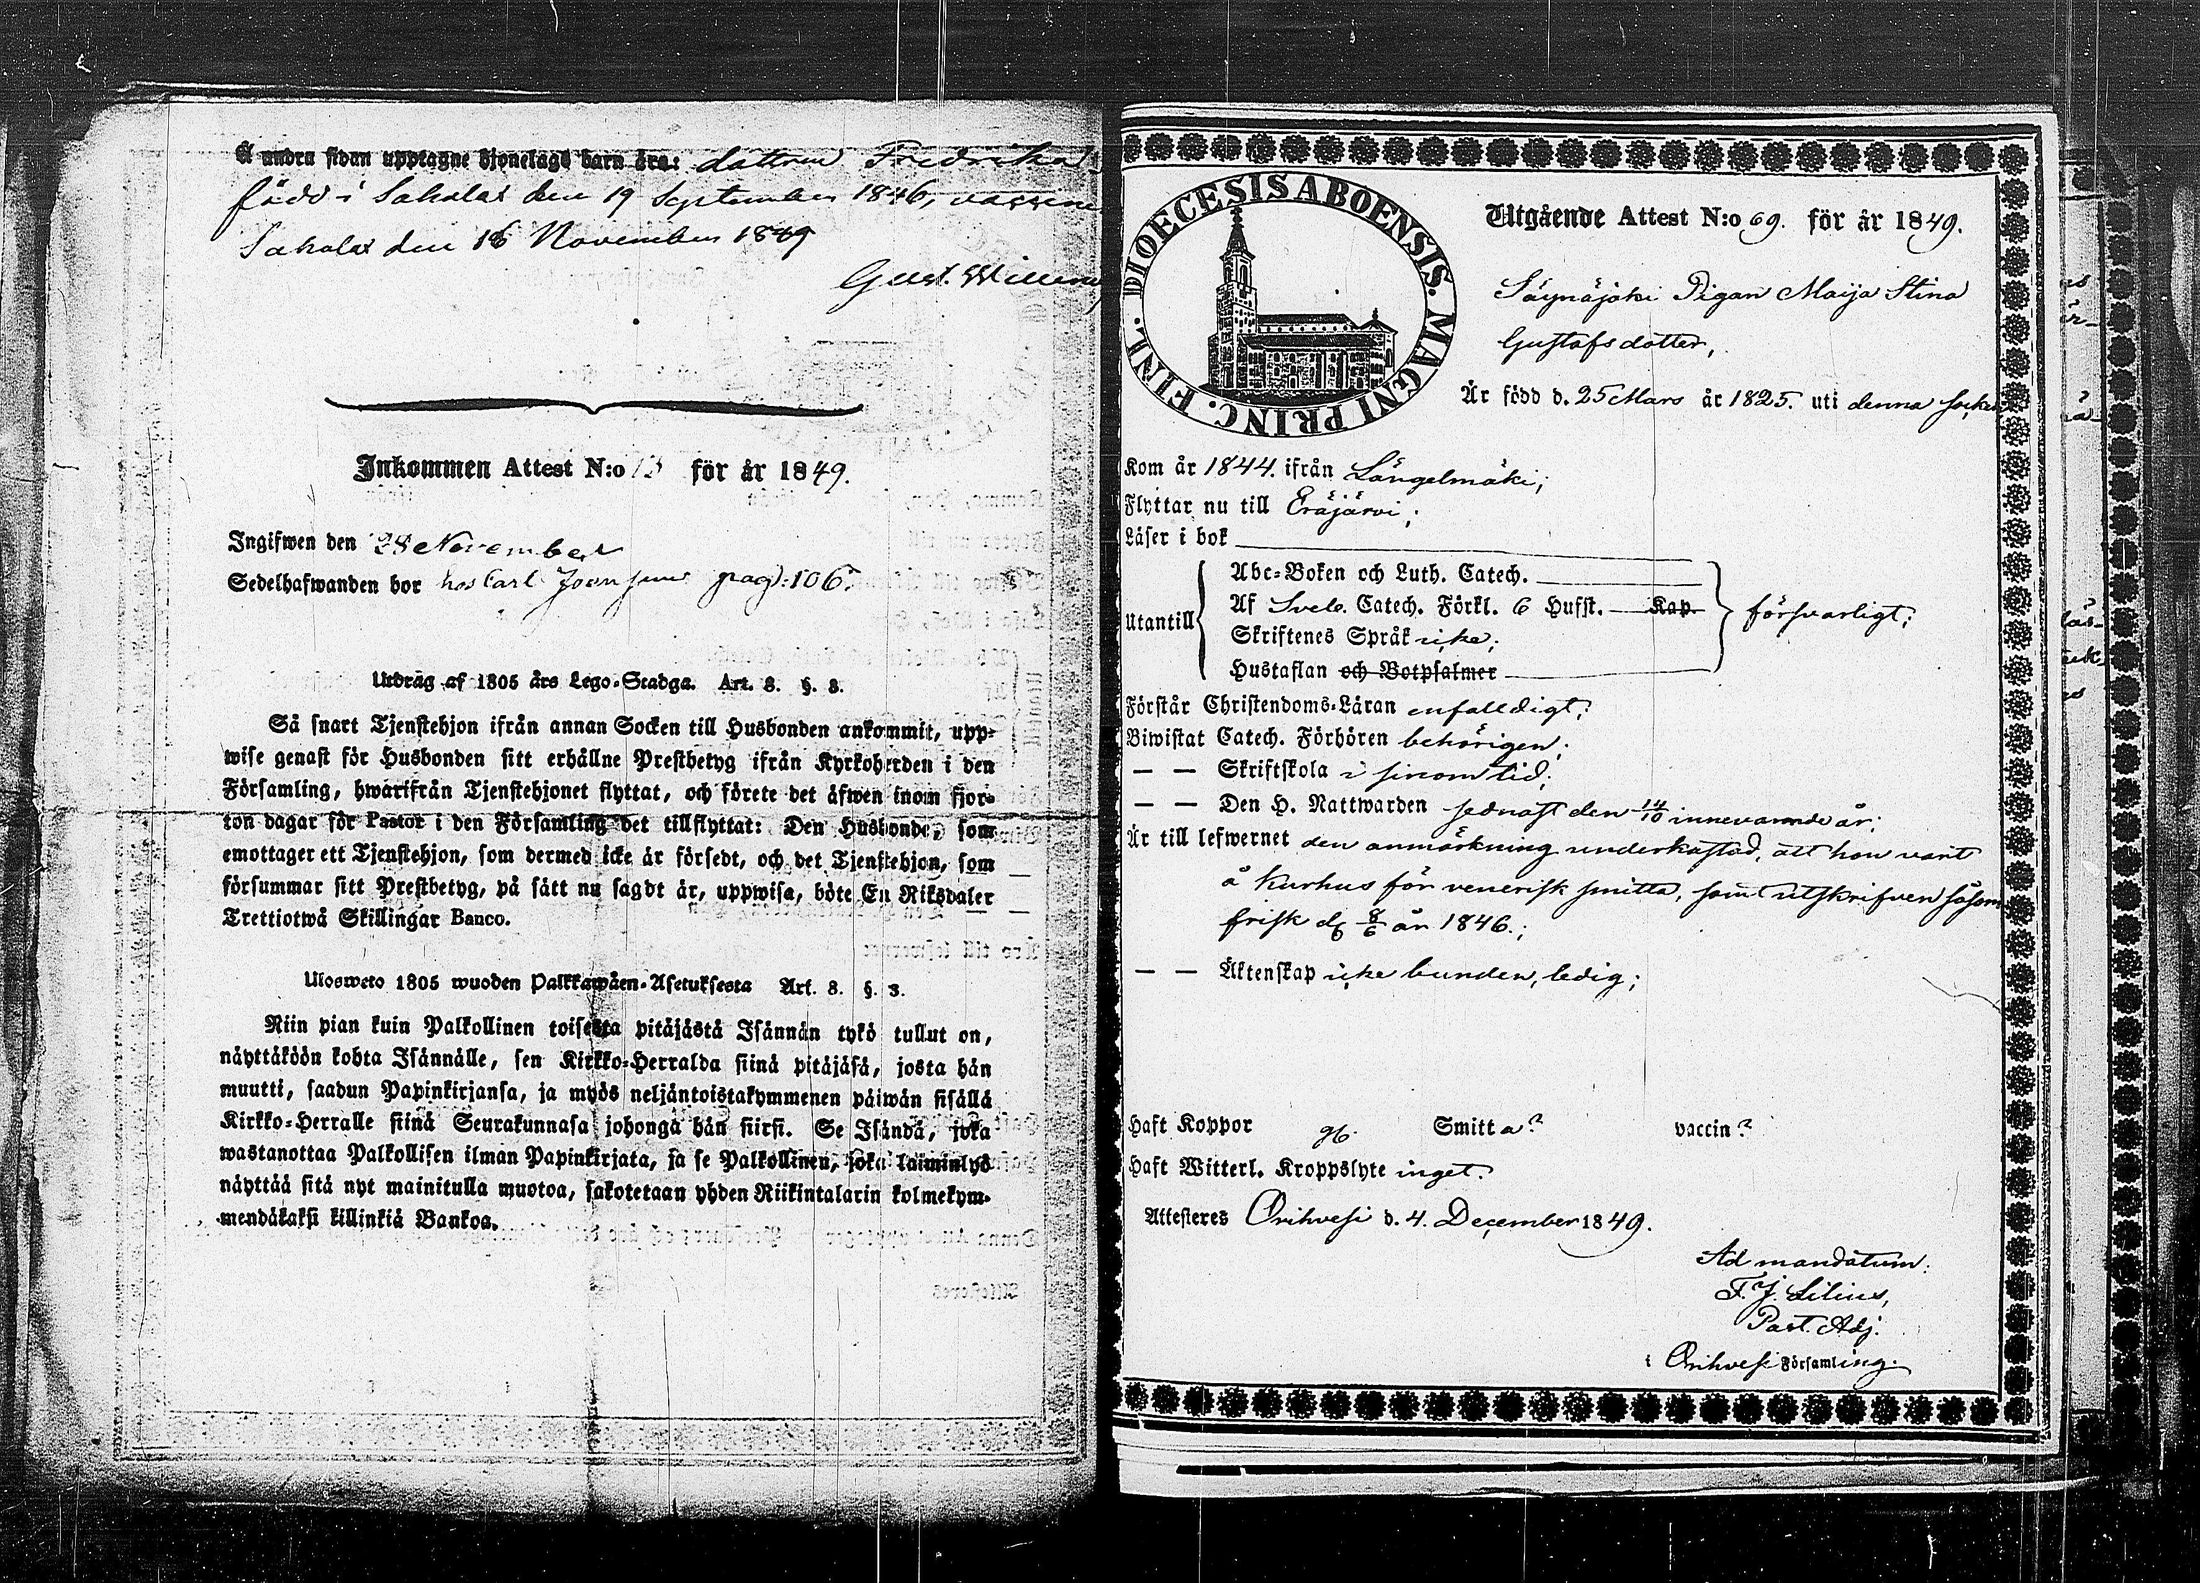 Å andra sidan upptagne hjonelags barn äro: dottren Fredrika
född i Sahalax den 19 September 1846,
Sahalax den 16 November 1849
Gust.
Inkommen Attest N:o 13 för år 1849.
Ingifwen den 28 November
Sedelhafwanden bor hos Carl pag: 106.
Utdrag af 1805 års Lego-Stadga. Art. 8. §. 3.
Så snart Tjenstehjon ifrån annan Socken till Husbonden ankommit, upp-
wise genast för Husbonden sitt erhållne Prestbetyg ifrån Kyrkoherden i den
Församling, hwarifrån Tjenstehjonet flyttat, och förete det äfwen inom fjor-
ton dagar för Pastor i den Församling det tillflyttat: Den Husbonde, som
emottager ett Tjenstehjon, som dermed icke är försedt, och det Tjenstehjon, som
försummar sitt Prestbetyg, på sätt nu sagdt är, uppwisa, böte En Riksdaler
Trettiotwå Skillingar Banco.
Ulosweto 1805 wuoden Palkkawäen-Asetuksesta Art. 8. §. 3.
Niin pian kuin Palkollinen toisesta pitäjästä Isännän tykö tullut on,
näyttäköön kohta Isännälle, sen Kirkko-Herralda siinä pitäjäsä, josta hän
muutti, saadun Papinkirjansa, ja myös neljäntoistakymmenen päiwän sisällä
Kirkko-Herralle siinä Seurakunnasa johonga hän siirsi. Se Isändä, joka
wastanottaa Palkollisen ilman Papinkirjata, ja se Palkollinen, joka laiminlyö
näyttää sitä nyt mainitulla muotoa, sakotetaan yhden Riikintalarin kolmekym-
mendäkaksi killinkiä Bankoa.
DIOECESIS ABOENSIS. MAGNI PRINC. FINL.
Utgående Attest N:o 69. för år 1849.
Säynäjoki Pigan Maija Stina
Gustafsdotter,
Är född d. 25 Mars år 1825. uti denna socken
Kom år 1844. ifrån Längelmäki;
Flyttar nu till Eräjärvi;
Läser i bok
Abc-Boken och Luth. Catech.
Utantill Af Sveb. Catech. Förkl. 6 Hufst. Kap. försvarligt;
Skriftenes Språk icke;
Hustaflan och Botpsalmer
Förstår Christendoms-Läran enfalldigt;
Biwistat Catech. Förhören behörigen;
— — Skriftskola i sinom tid;
— — Den H. Nattwarden sednast den 14/10 innevarande år;
Är till lefwernet den anmärkning underkastad, att hon varit
å kurhus för venerisk smitta, samt utskrifven såsom
frisk d. 8/6 år 1846.;
— — Äktenskap icke bunden, ledig;
Haft Koppor Smitta? vaccin?
Haft Witterl. Kroppslyte inget.
Attesteres Orihvesi d. 4. December 1849.
Ad mandatum:
F. J. Lilius,
Past. Adj.
i Orihvesi Församling.